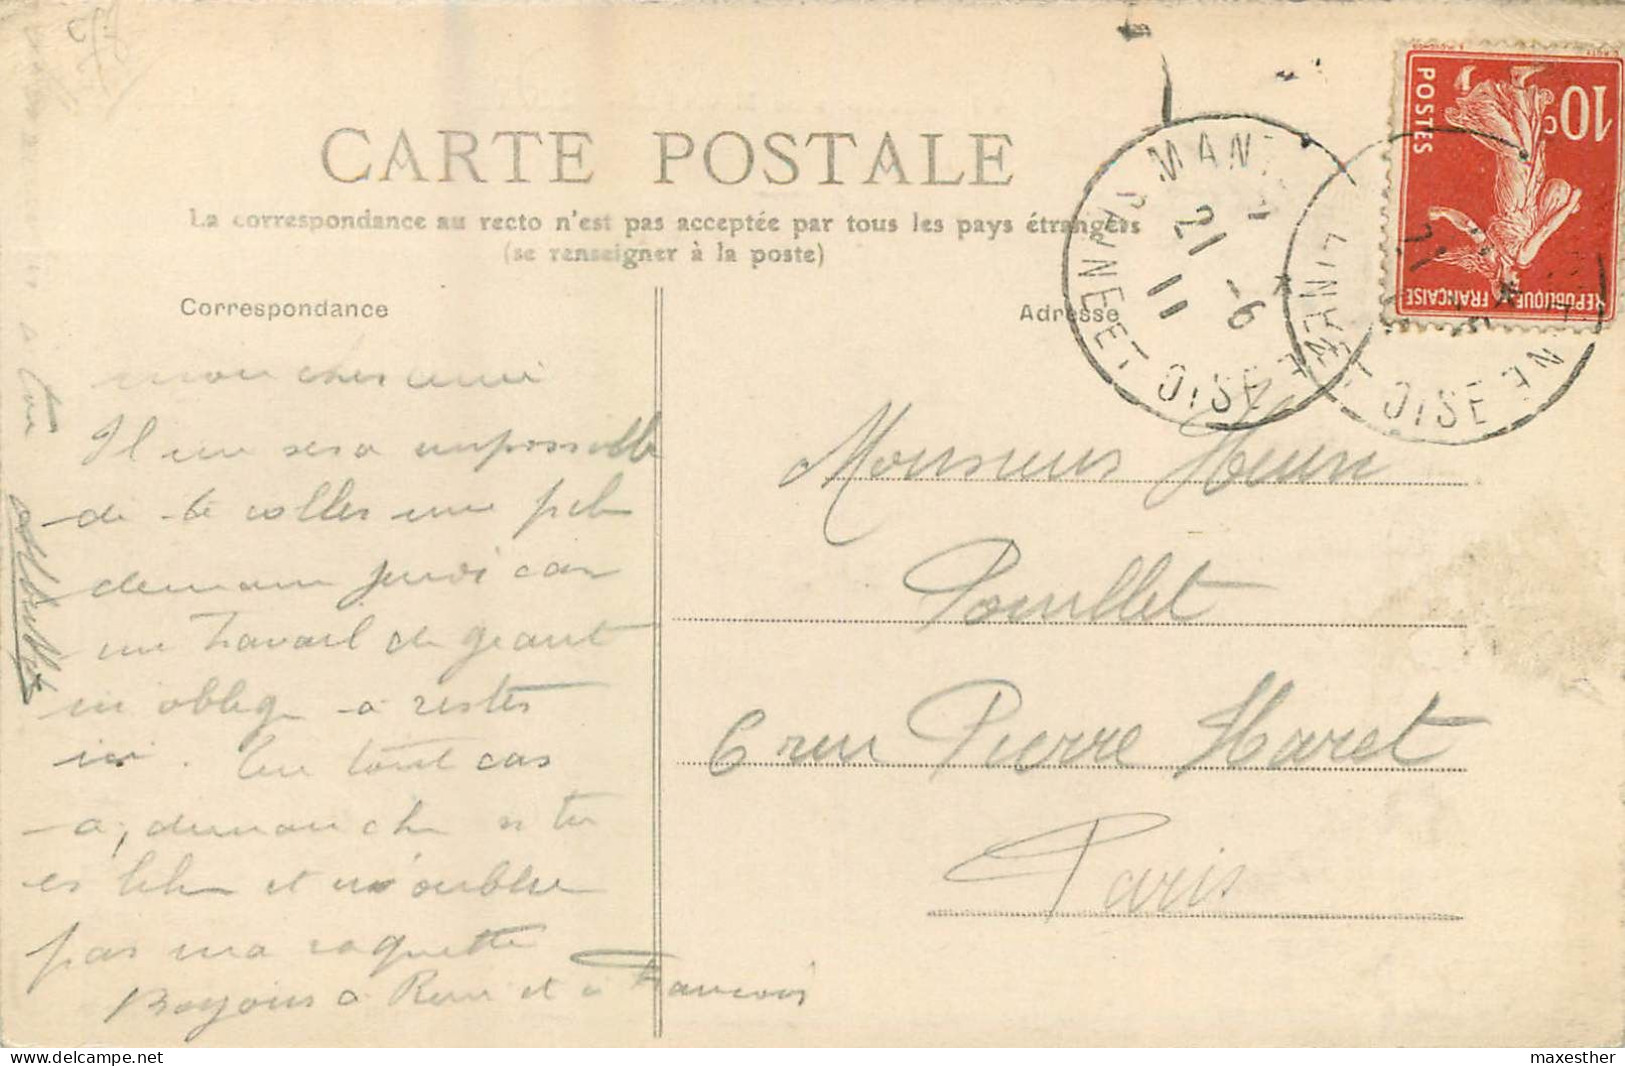 CARTE POSTALE
La correspondance au recto n'est pas acceptée par tous les pays étrangers
(se renseigner à la poste)
Correspondance
Adresse
10c
POSTES
REPUBLIQUE FRANÇAISE
21 -6
11
OISE
OISE
mon cher ami
Il me sera impossible
de te coller une pile
demain jeudi car
un travail de geant
m'oblige a rester
ici. En tout cas
a dimanche si tu
es libre et n'oublie
pas ma raquette
Bonjour a René et a Francois
a toi
Monsieur Henri
Pouillet
6 rue Pierre Haret
Paris
maxesther
https://www.delcampe.net